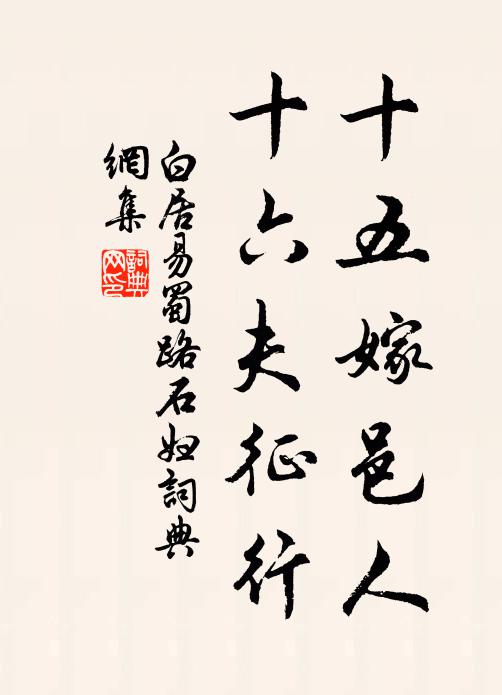 十五嫁邑人
十六夫征行
白居易蜀路石妇詞典
網集
詞典网印